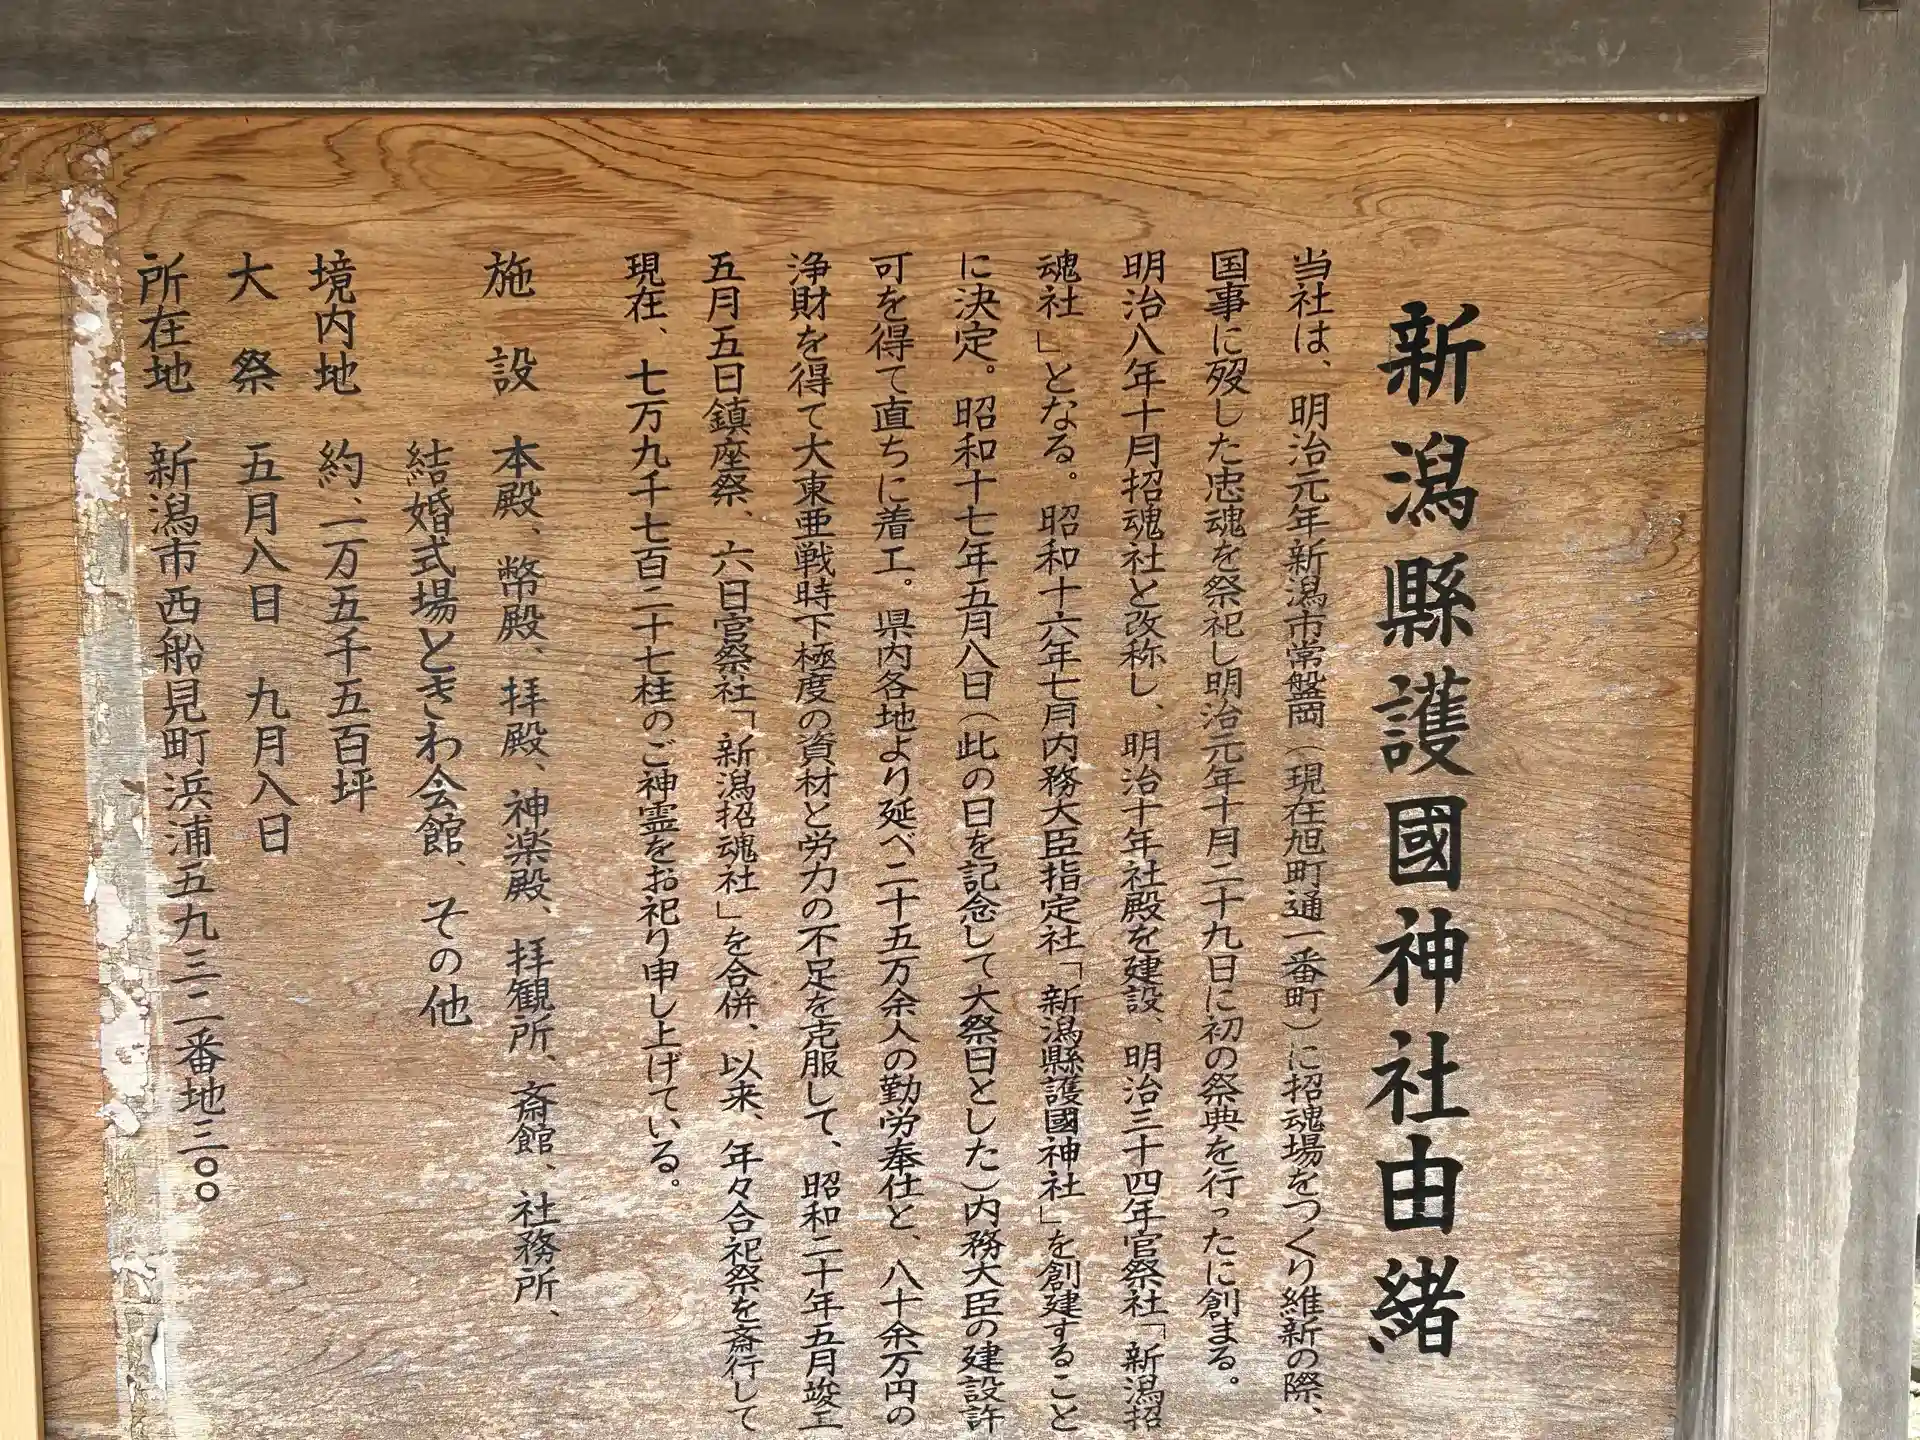 新潟縣護國神社由緒
当社は、明治元年新潟市常盤岡（現在旭町通一番町）に招魂場をつくり維新の際、
国事に歿した忠魂を祭祀し明治元年十月二十九日に初の祭典を行ったに創まる。
明治八年十月招魂社と改称し、明治十年社殿を建設、明治三十四年官祭社「新潟招
魂社」となる。昭和十六年七月内務大臣指定社「新潟縣護國神社」を創建すること
に決定。昭和十七年五月八日（此の日を記念して大祭日とした）内務大臣の建設許
可を得て直ちに着工。県内各地より延べ二十五万余人の勤労奉仕と、八十余万円の
浄財を得て大東亜戦時下極度の資材と労力の不足を克服して、昭和二十年五月竣工
五月五日鎮座祭、六日官祭社「新潟招魂社」を合併、以来、年々合祀祭を斎行して
現在、七万九千七百二十七柱のご神霊をお祀り申し上げている。
施設 本殿、幣殿、拝殿、神楽殿、拝観所、斎館、社務所、
結婚式場ときわ会館、その他
境内地 約、二万五千五百坪
大祭 五月八日 九月八日
所在地 新潟市西船見町浜浦五九三二番地三〇〇